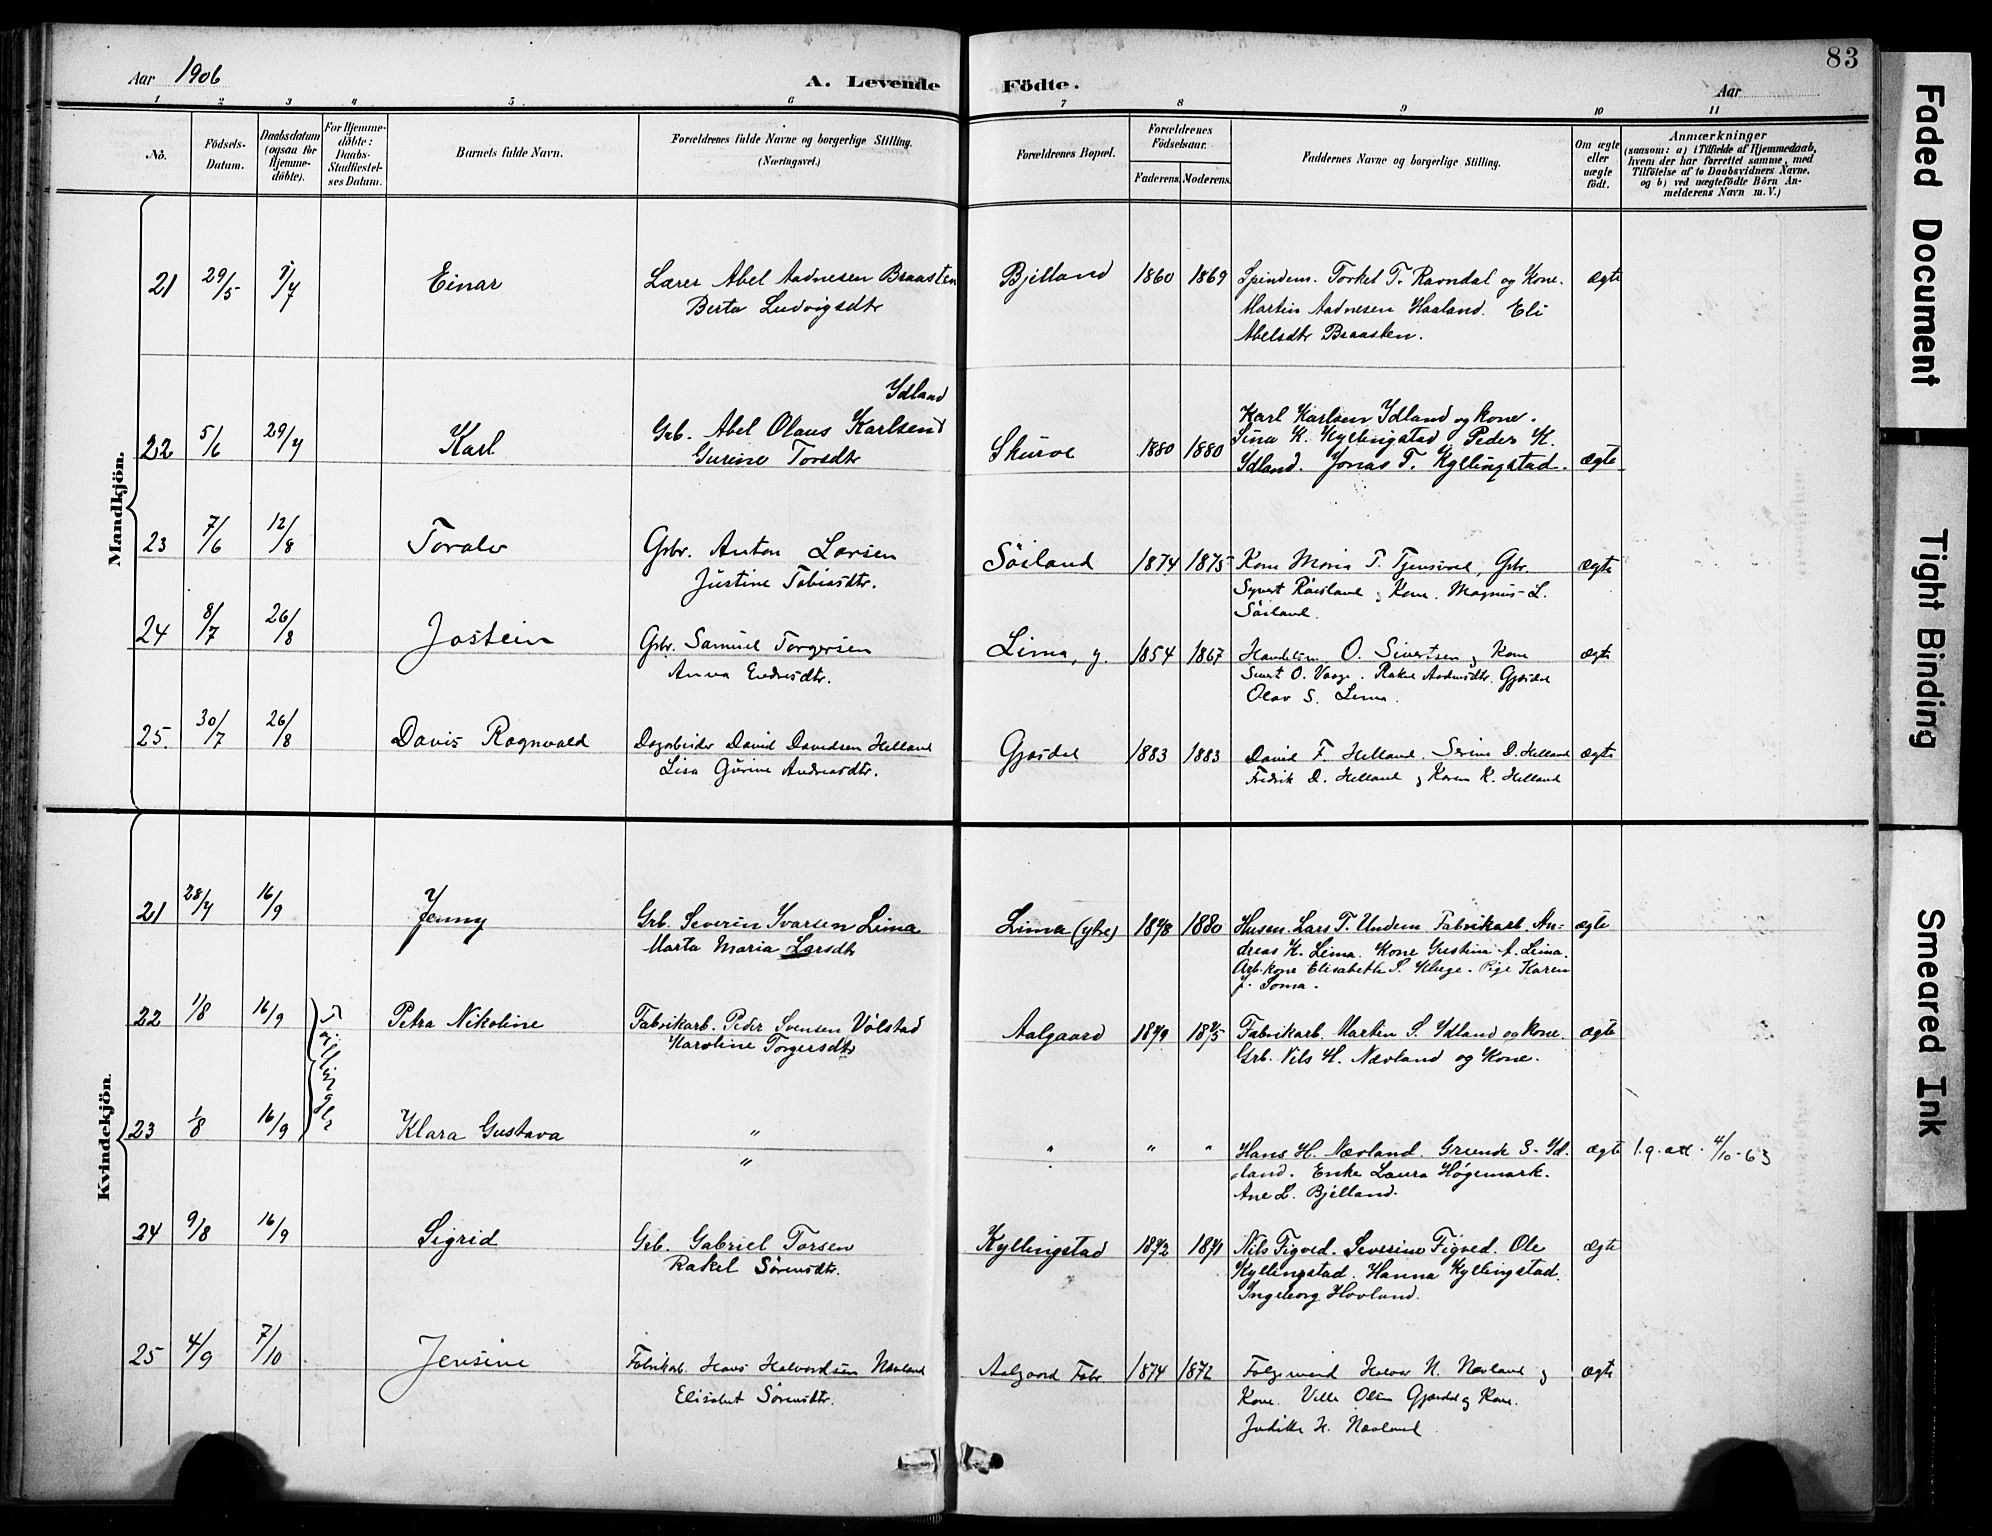 Aar 1906
A. Levende Födte.
Aar
83
1 2 3 4 5 6 7 8 9 10 11
No.
Födsels-
Datum.
Daabsdatum
(ogsaa for
Hjemme-
döbte).
For Hjemme-
döbte:
Daabs-
Stadfæstel-
ses Datum.
Barnets fulde Navn.
Forældrenes fulde Navne og borgerlige Stilling.
(Næringsvei.)
Forældrenes Bopæl.
Forældrenes
Födselsaar.
Faderens. Moderens.
Faddernes Navne og borgerlige Stilling.
Om ægte
eller
uægte
födt.
Anmærkninger
(saasom: a) i Tilfælde af Hjemmedaab,
hvem der har forrettet samme, med
Tilföielse af to Daabsvidners Navne,
og b) ved uægtefödte Börn An-
melderens Navn m. V.)
Mandkjön.
21 29/5 1/7 Einar Lærer Abel Aadnesen Braasten Bjelland 1860 1869 Torkel T. Ravndal og Kone. ægte
Berta Ludvigsdtr Martin Aadnesen Haaland. Eli
Abelsdtr Braasten.
Ydland
22 5/6 29/7 Karl Grb. Abel Olaus Karlsen Skurve 1880 1880 Karl Karlsen Ydland og kone.
Gurine Torsdtr Sina K. Kyllingstad Peder K.
Ydland. Jonas T. Kyllingstad. ægte
23 7/6 12/8 Toralv Grbr. Anton Larsen Söiland 1874 1875 Kone Maria T. Gbr. ægte
Justine Tobiasdtr. Syvert & Kone. Magnus L.
Söiland.
24 8/7 26/8 Jostein Grbr. Samuel Torgersen Lima, y. 1854 1867 O. Sivertsen & Kone ægte
Anna Endresdtr. Sivert O. Vaage. Rakel Aadnesdtr. Gjesdal
Olav S. Lima.
25. 30/7 26/8 David Ragnvald Dagarbeider David Davidsen Helland Gjesdal 1883 1883 David F. Helland. Serine D. Helland ægte
Lisa Gurine Andreasdtr. Fredrik D. Helland & Karen K. Helland
Kvindekjön.
21 28/7 16/9 Jenny Grb. Severin Ivarsen Lima Lima (ytre) 1878 1880 Husm. Lars T. Undem Fabrikarb. An- ægte
Marta Maria Larsdtr dreas K. Lima. Kone Gustina A. Lima.
Arb. kone Elisabeth S. Kluge. Pige Karen
J. Soma.
22 1/8 16/9 Tvillinger Petra Nikoline Fabrikarb. Peder Svensen Völstad Aalgaard 1879 1875 Fabrikarb. Martin S. Ydland og kone. ægte
Karoline Torgersdtr Grb. Nils H. Nævland og Kone.
23 1/8 16/9 Klara Gustava " " " " Hans H. Nævland. Grunde S. Yd- ægte 1.g. att. 4/10-63
" land. Enke Laura Høgemark.
Ane L. Bjelland.
24 9/8 16/9 Sigrid Grb. Gabriel Torsen Kyllingstad 1872 1871 Nils Figved. Severine Figved. Ole ægte
Rakel Sörensdtr. Kyllingstad. Hanna Kyllingstad.
Ingeborg Hovland.
25 4/9 7/10 Jensine Fabrikarb. Hans Halvordsen Nævland Aalgaard Fabr. 1874 1872 Halvor N. Nævland & ægte
Elisabet Sörensdtr. Kone. Ville Olsen Gjesdal & Kone.
Judithe H. Nævland
Faded Document
Tight Binding
Smeared Ink